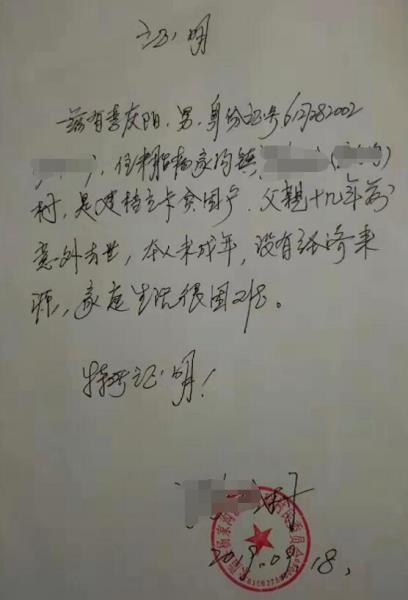 证明
兹有李庆阳,男,身份证号6127282002
),住米脂杨家沟镇 (
村,是建档立卡贫困户,父亲十几年前
意外去世,本人未成年,没有经济来
源,家庭生活很困难。
特此证明!
村
2019.09.18.